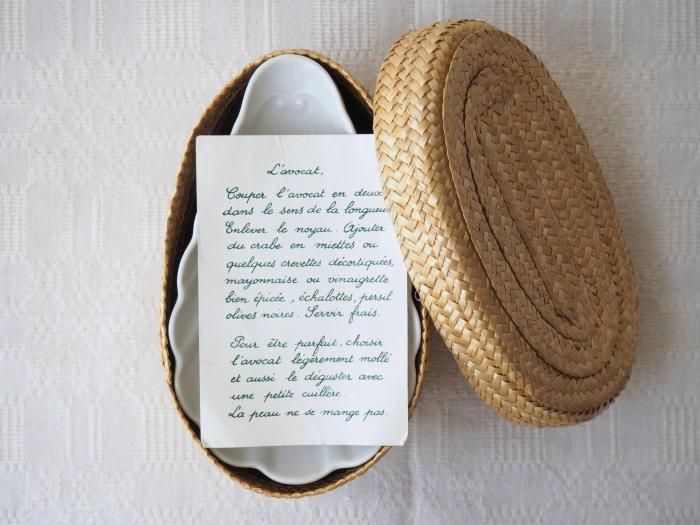 L'avocat,
Couper l'avocat en deux
dans le sens de la longueur
Enlever le noyau. Ajouter
du crabe en miettes ou
quelques crevettes décortiquées,
mayonnaise ou vinaigrette
bien épicée, échalottes, persil
olives noires. Servir frais.
Pour être parfait, choisir
l'avocat légèrement mollé
et aussi le déguster avec
une petite cuillère.
La peau ne se mange pas.